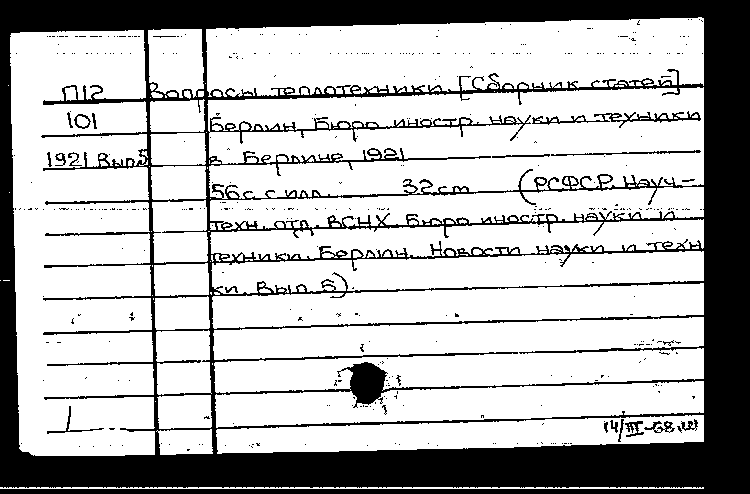 П12 Вопросы теплотехники. [Сборник статей]
101 Берлин, Бюро иностр. науки и техники
1921 Вып.5 в Берлине, 1921
56с. с илл. 32см (РСФСР. Науч.-
техн. отд. ВСНХ. Бюро иностр. науки и
техники. Берлин. Новости науки и техн
ки. Вып. 5).
1
14/III-68